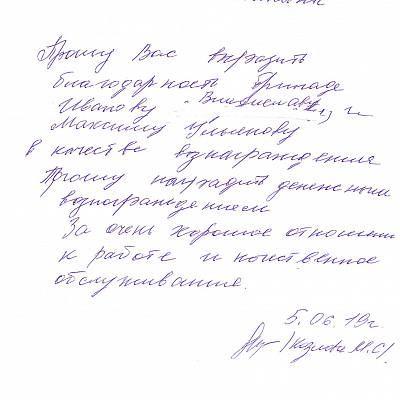 Прошу Вас выразить
благодарность бригаде
Иванову Вячеславу, и
Максиму Ульянову
в качестве вознаграждения
Прошу наградить денежным
вознаграждением
За очень хорошое отношение
к работе и качественное
обслуживание.
5.06.19г.
/Козлова М.С/